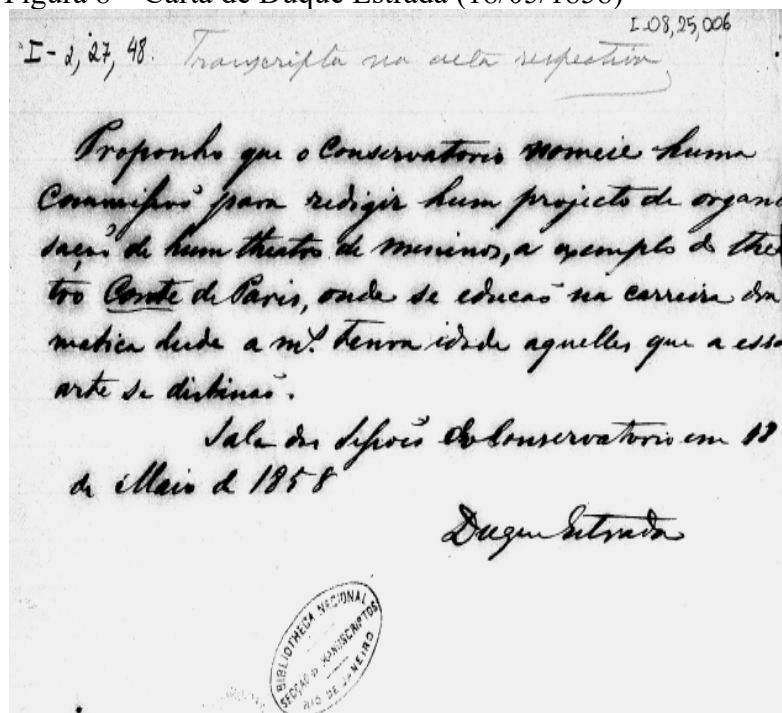 Figura 8 – Carta de Duque Estrada (18/05/1858)
I-08,25,006
I-2,27,48. Transcripta na acta respectiva
Proponho que o Conservatorio nomeie huma
Commissaõ para redigir hum projecto de organi
saçaõ de hum theatro de meninos, a exemplo do thea
tro Comte de Paris, onde se educaõ na carreira dra
matica desde a m.ᵃ tenra idade aquelles que a essa
arte se destinaõ.
Sala das Sessoẽs do Conservatorio em 18
de Maio de 1858
Duque Estrada
BIBLIOTHECA NACIONAL
SECÇÃO DE MANUSCRIPTOS
RIO DE JANEIRO